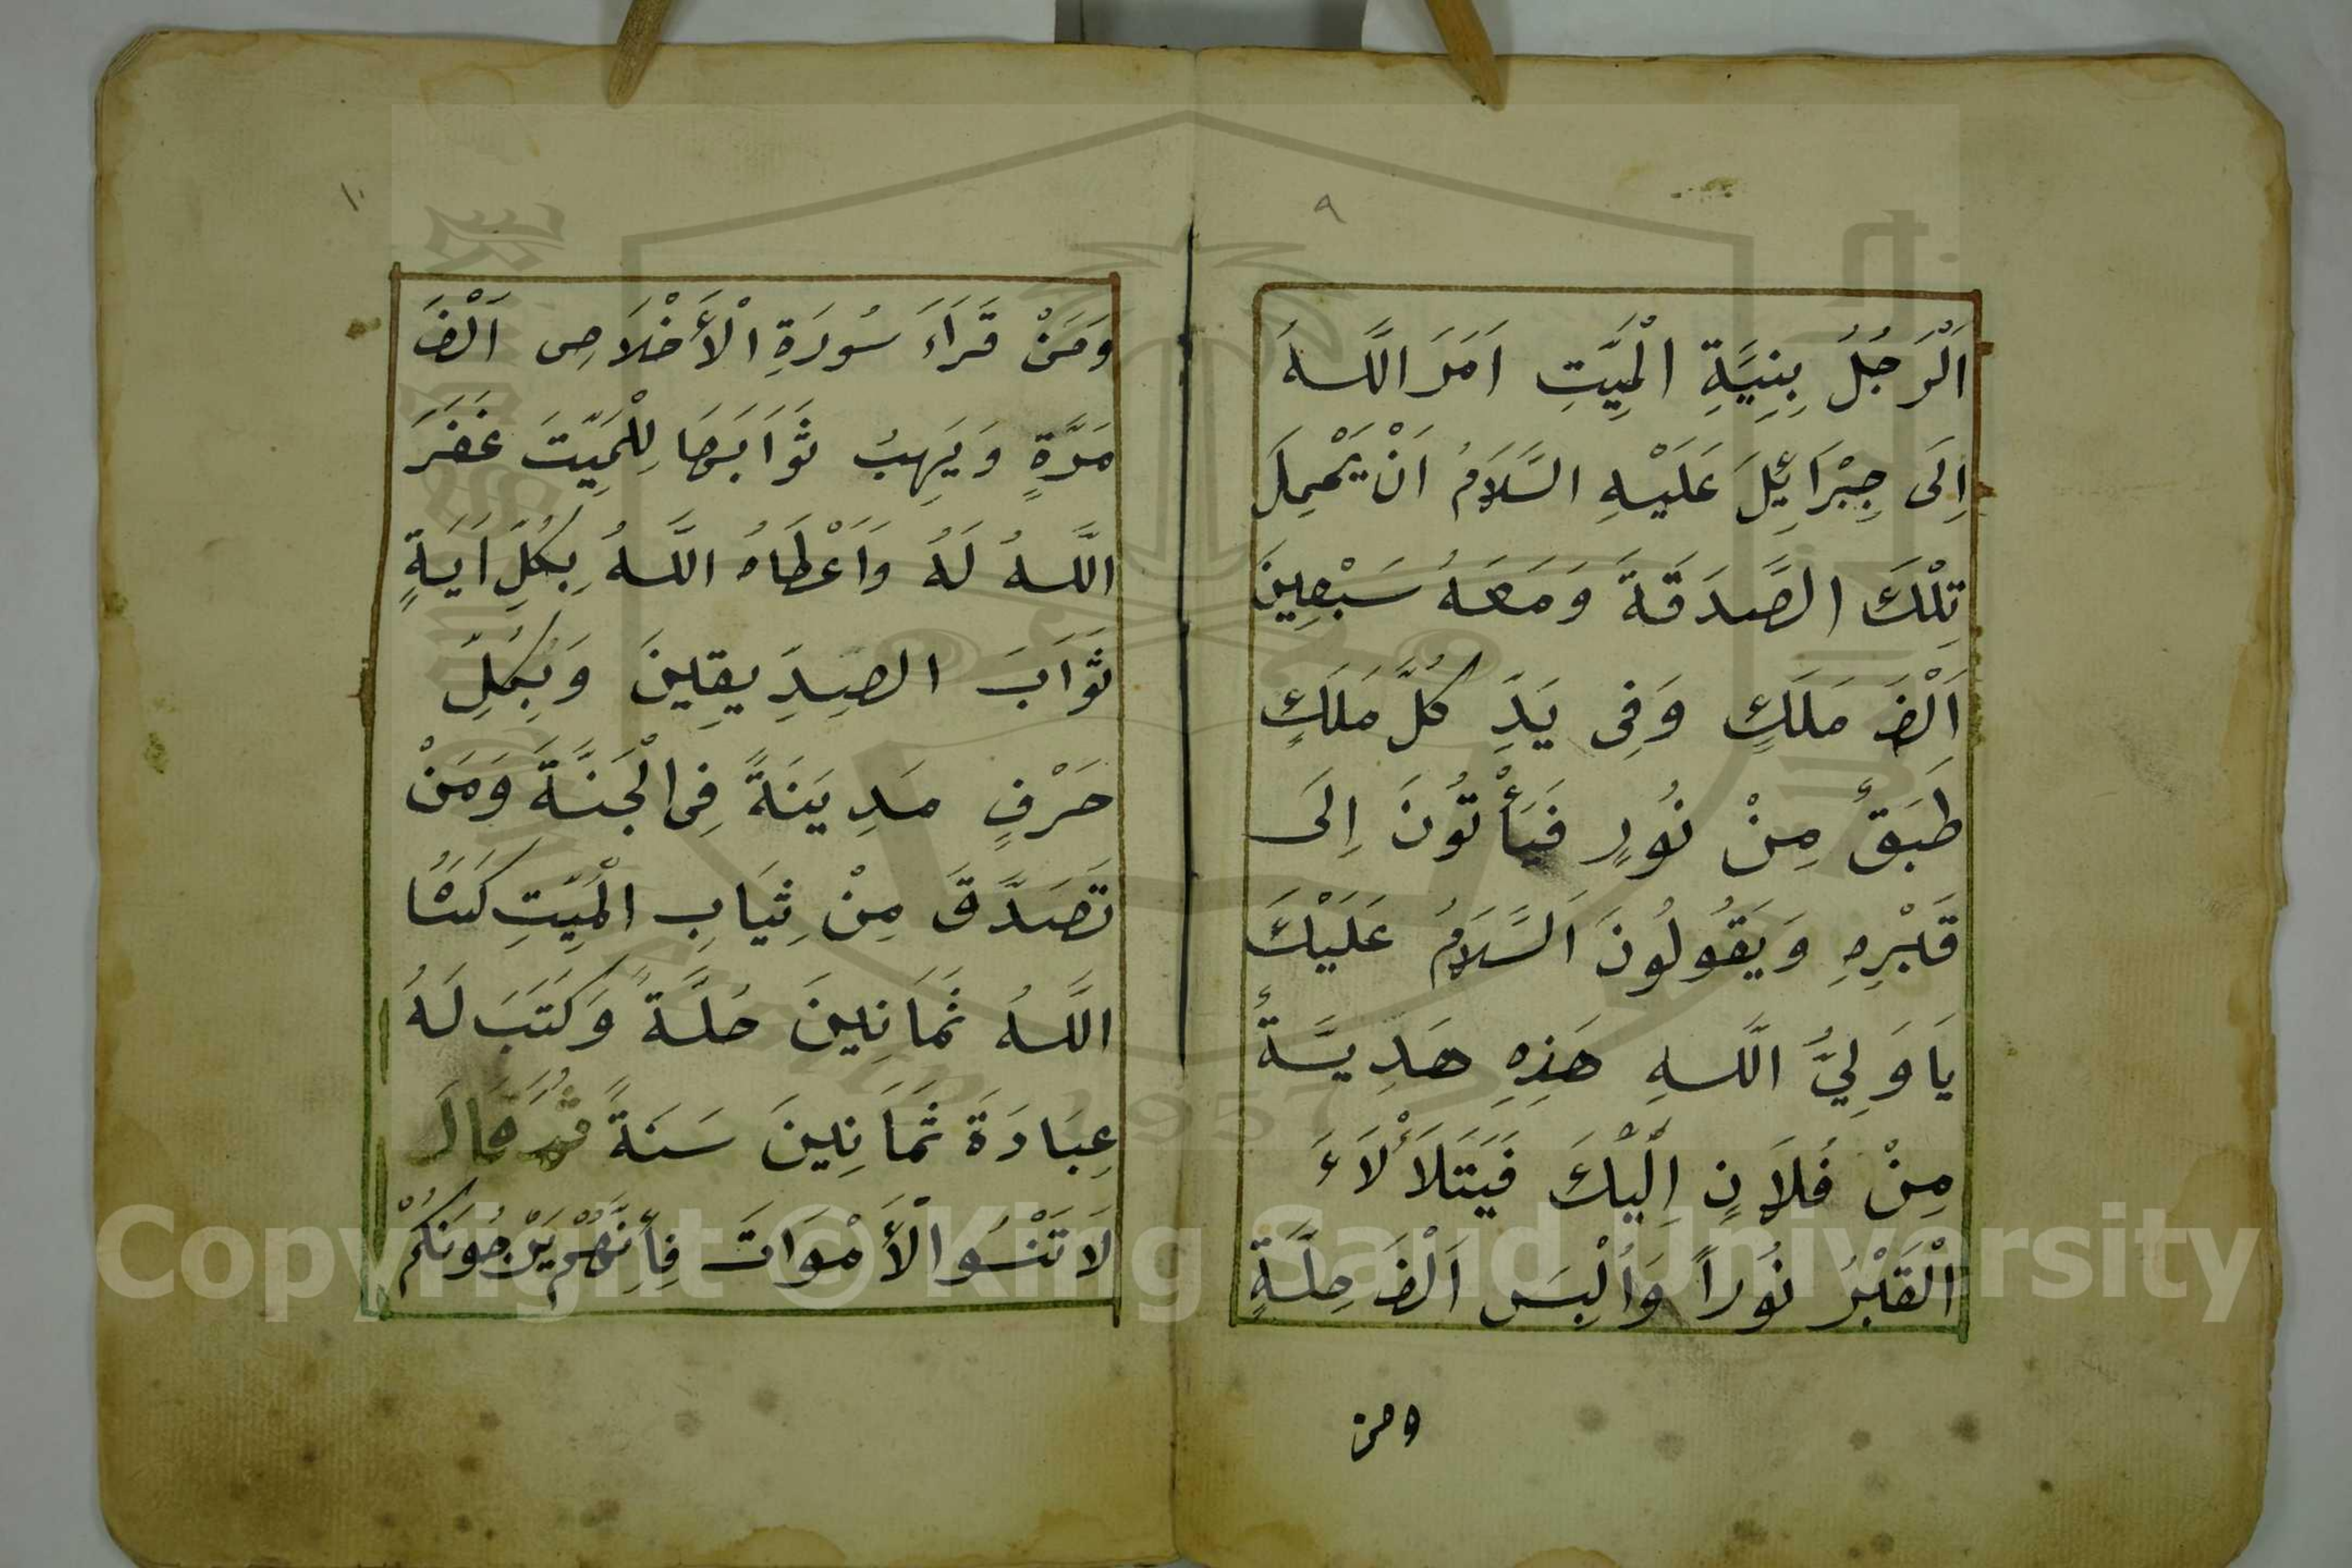 ٩
اَلْرَجُلُ بِنِيَّةِ الْمَيِّتِ اَمَرَ اللَّهُ
اِلَى جِبْرَائِلَ عَلَيْهِ السَّلَامُ اَنْ يَحْمِلَ
تِلْكَ الصَّدَقَةَ وَمَعَهُ سَبْعِينَ
اَلْفَ مَلَكٍ وَفِى يَدِ كُلِّ مَلَكٍ
طَبَقٌ مِنْ نُورٍ فَيَأْتُونَ اِلَى
قَبْرِهِ وَيَقُولُونَ اَلسَّلَامُ عَلَيْكَ
يَا وَلِيَّ اللَّهِ هَذِهِ هَدِيَّةٌ
مِنْ فُلَانٍ اِلَيْكَ فَيَتَلَأْلَاءَ
اْلْقَبْرُ نُوراً وَاُلْبِسَ اَلْفَ حِلَّةٍ
ومن
١٠
وَمَنْ قَرَاءَ سُورَةِ الْأَخْلَاصِ اَلْفَ
مَرَّةٍ وَيَهِبُ ثَوَابَهَا لِلْمَيِّتَ غَفَرَ
اللَّهُ لَهُ وَاَعْطَاهُ اللَّهُ بِكُلِّ اَيَةٍ
ثَوَّابَ الصِدِيقِينَ وَبِكُلِّ
حَرْفٍ مَدِيَنَةً فِى الْجَنَّةَ وَمَنْ
تَصَدَّقَ مِنْ ثِيَابِ الْمَيِّتِ كَسَاُ
اللَّهُ ثَمَانِينَ حُلَّةً وَكَتَبَ لَهُ
عِبَادَةَ ثَمَانِينَ سَنَةً قَالَ
لَا تَنْسُوا الْأَمْوَاتَ فَاِنَّهُمْ يَرْجُونَكُمْ
Copyright © King Saud University
1957